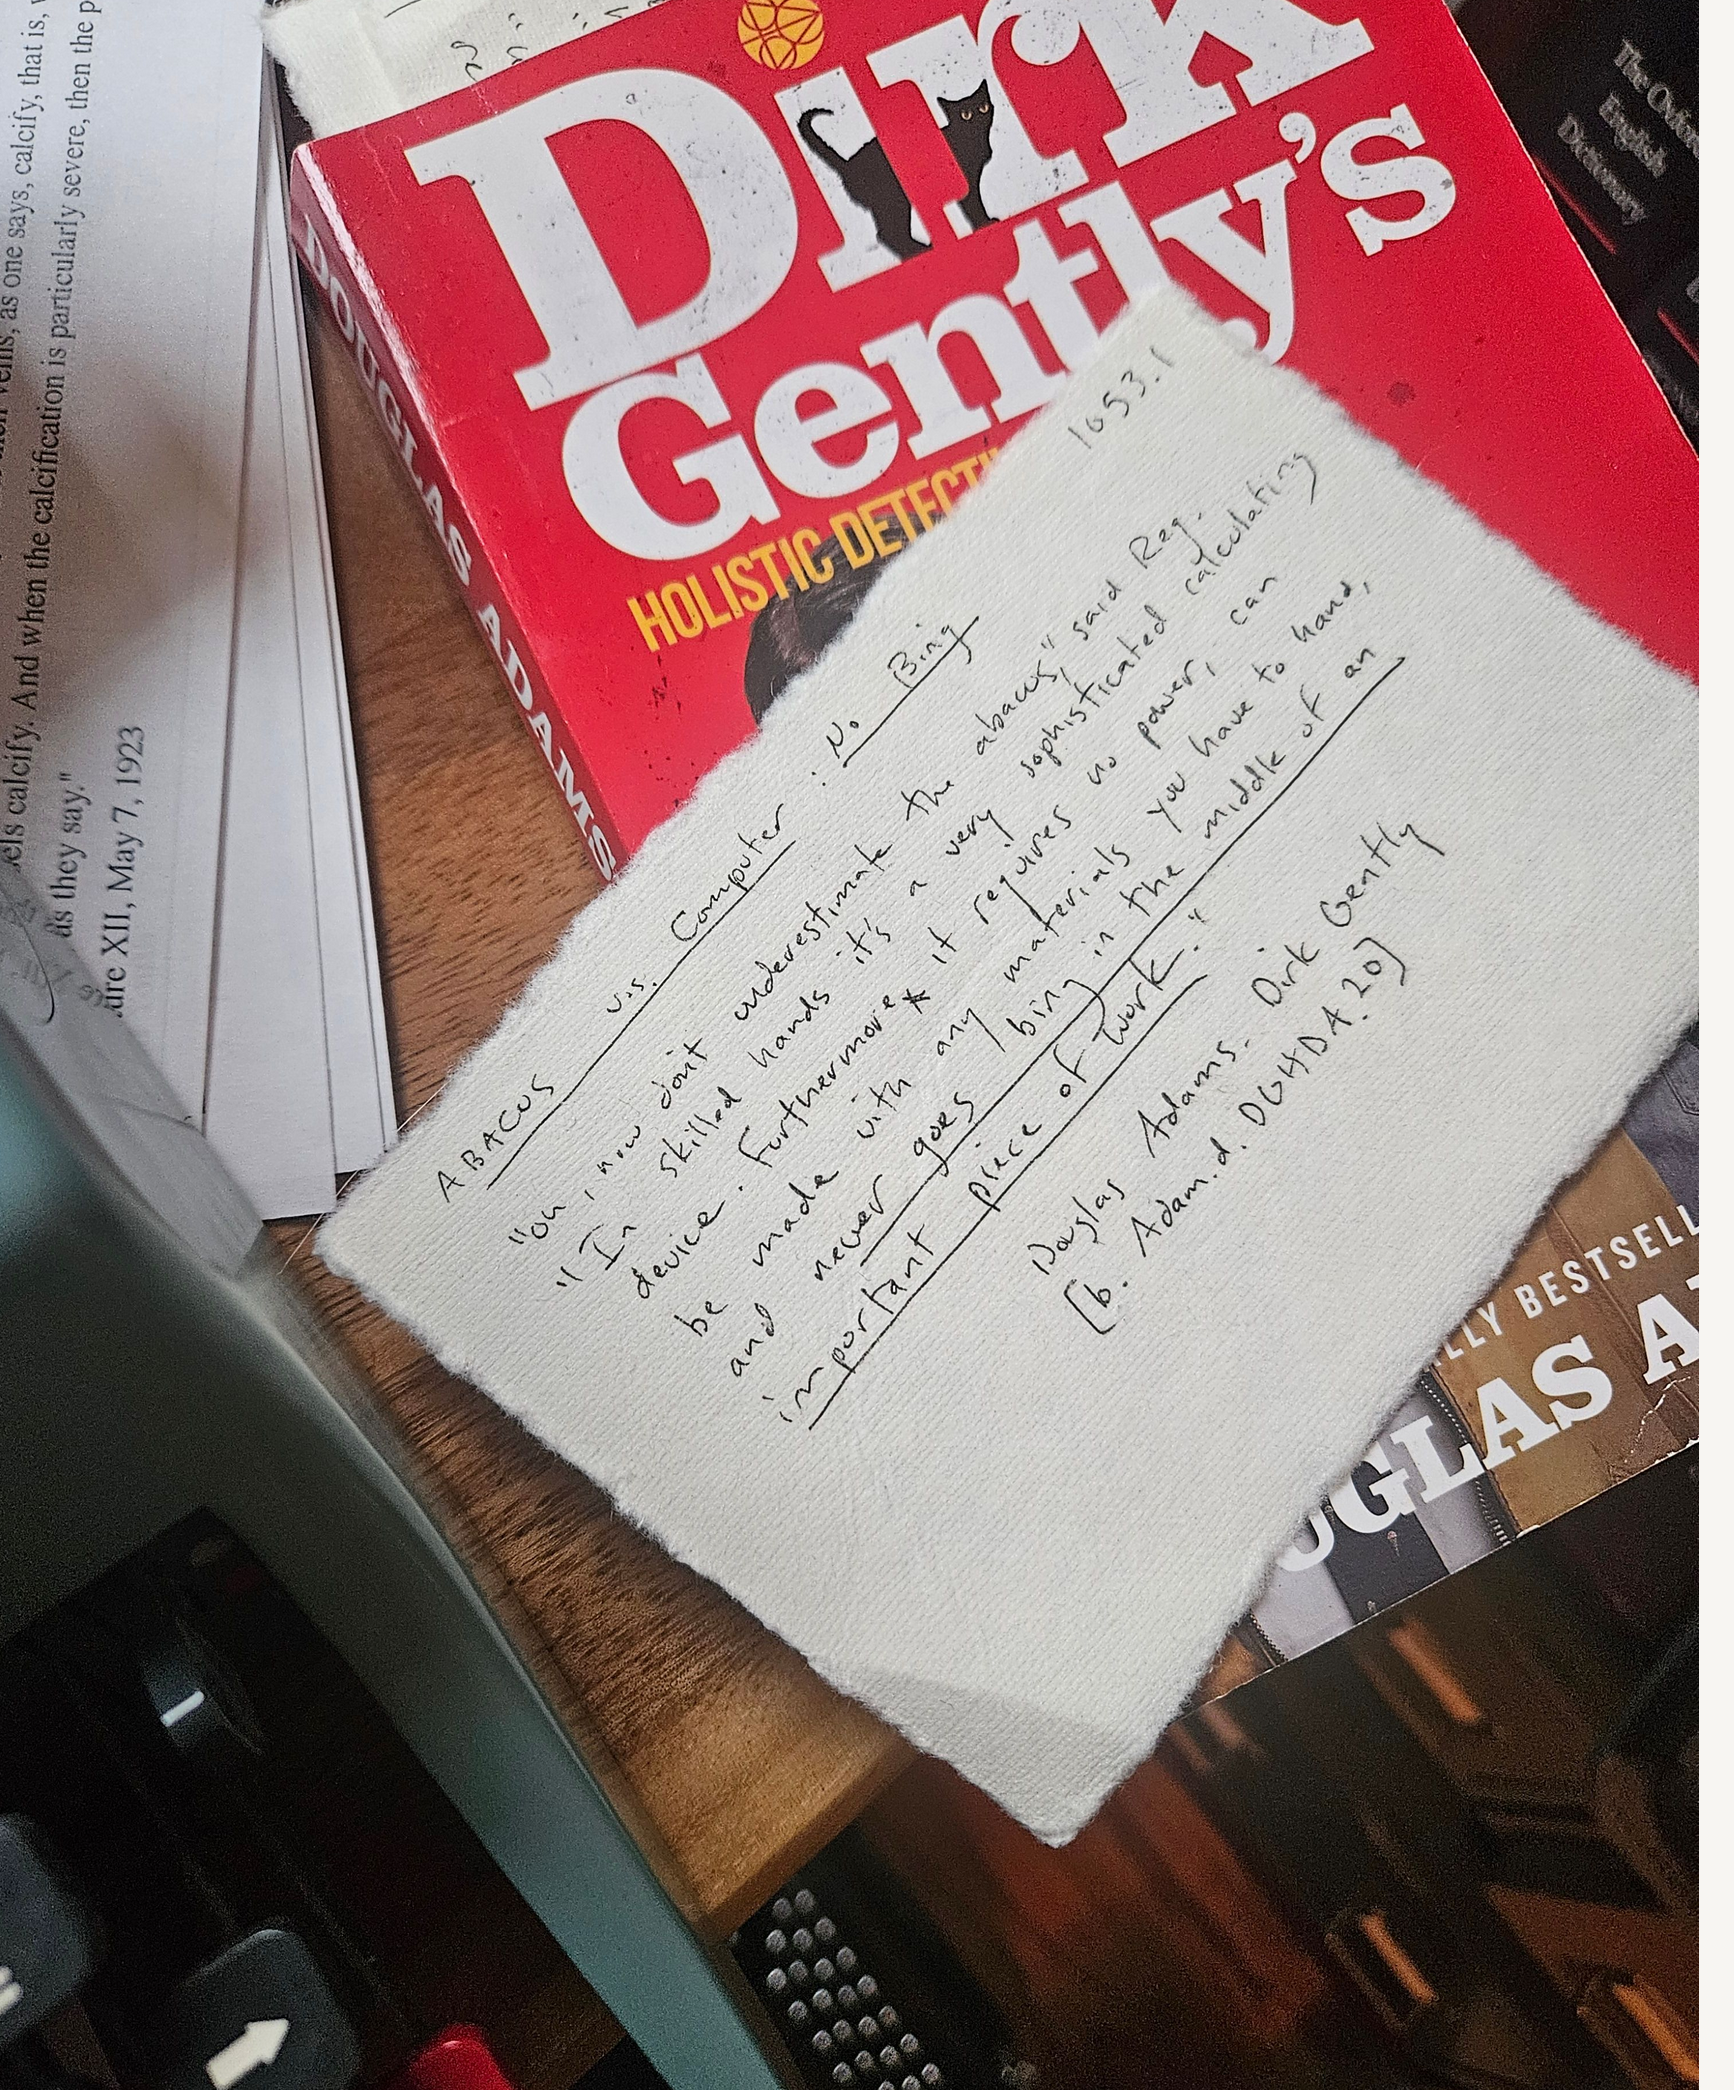 as one says, calcify, that is,
els calcify. And when the calcification is particularly severe, then the p
as they say."
XII, May 7, 1923
Dirk
Gently's
HOLISTIC
DOUGLAS ADAMS
The Oxford
English
Dictionary
1053.1
ABACUS v.s. Computer : No Bing
"Oh, now don't underestimate the abacus," said Reg.
"In skilled hands it's a very sophisticated calculating
device. Furthermore * it requires no power, can
be made with any materials you have to hand,
and never goes bing in the middle of an
important piece of work."
Douglas Adams. Dirk Gently
[b. Adam.d. DGHDA.20]
LLY BESTSELL
UGLAS A